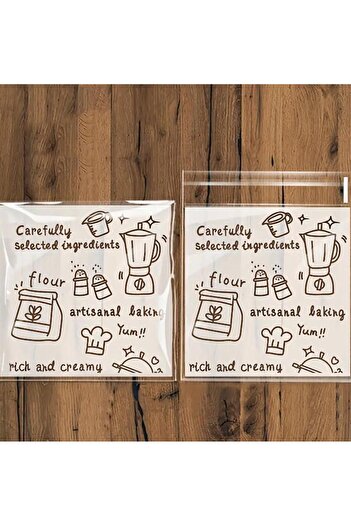 Carefully
selected ingredients
flour
artisanal baking
Yum!!
rich and creamy
Carefully
selected ingredients
flour
artisanal baking
Yum!!
rich and creamy